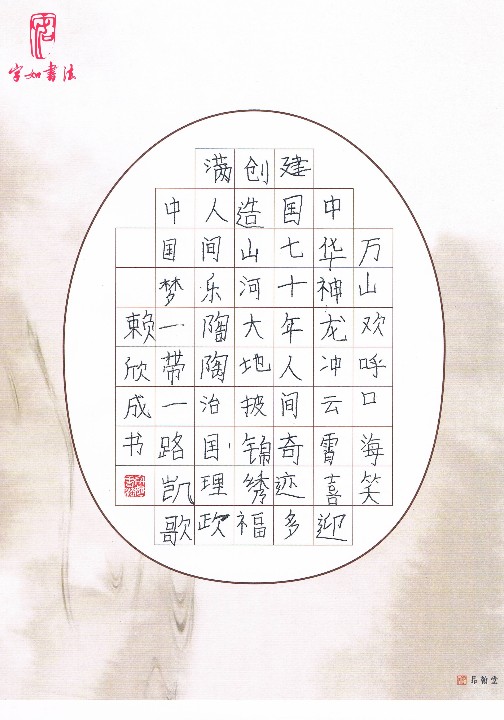 字如書法
万山欢呼口海笑
中华神龙冲云霄喜迎
建国七十年人间奇迹多
创造山河大地披锦绣福
满人间乐陶陶治国理政
中国梦一带一路凯歌
赖欣成书